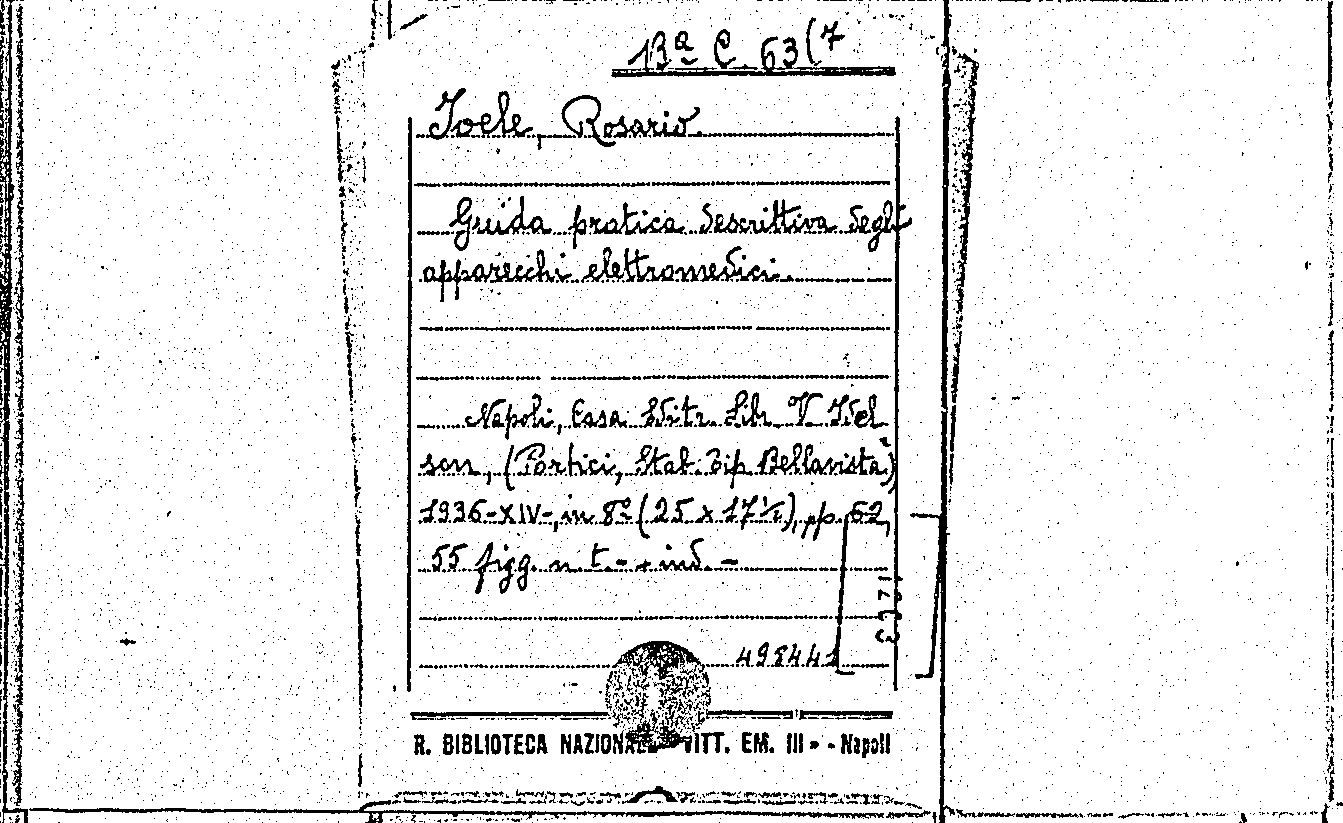 13ª C. 63(7
Ioele, Rosario.
Guida pratica descrittiva degli
apparecchi elettromedici.
Napoli, Casa Editr. Libr. V. Idel
son, (Portici, Stab. Tip. Bellavista)
1936-XIV-, in 8º (25 x 17½), pp. 62,
55 figg. n. t. - + ind. -
498441
R. BIBLIOTECA NAZIONALE « VITT. EM. III » - Napoli